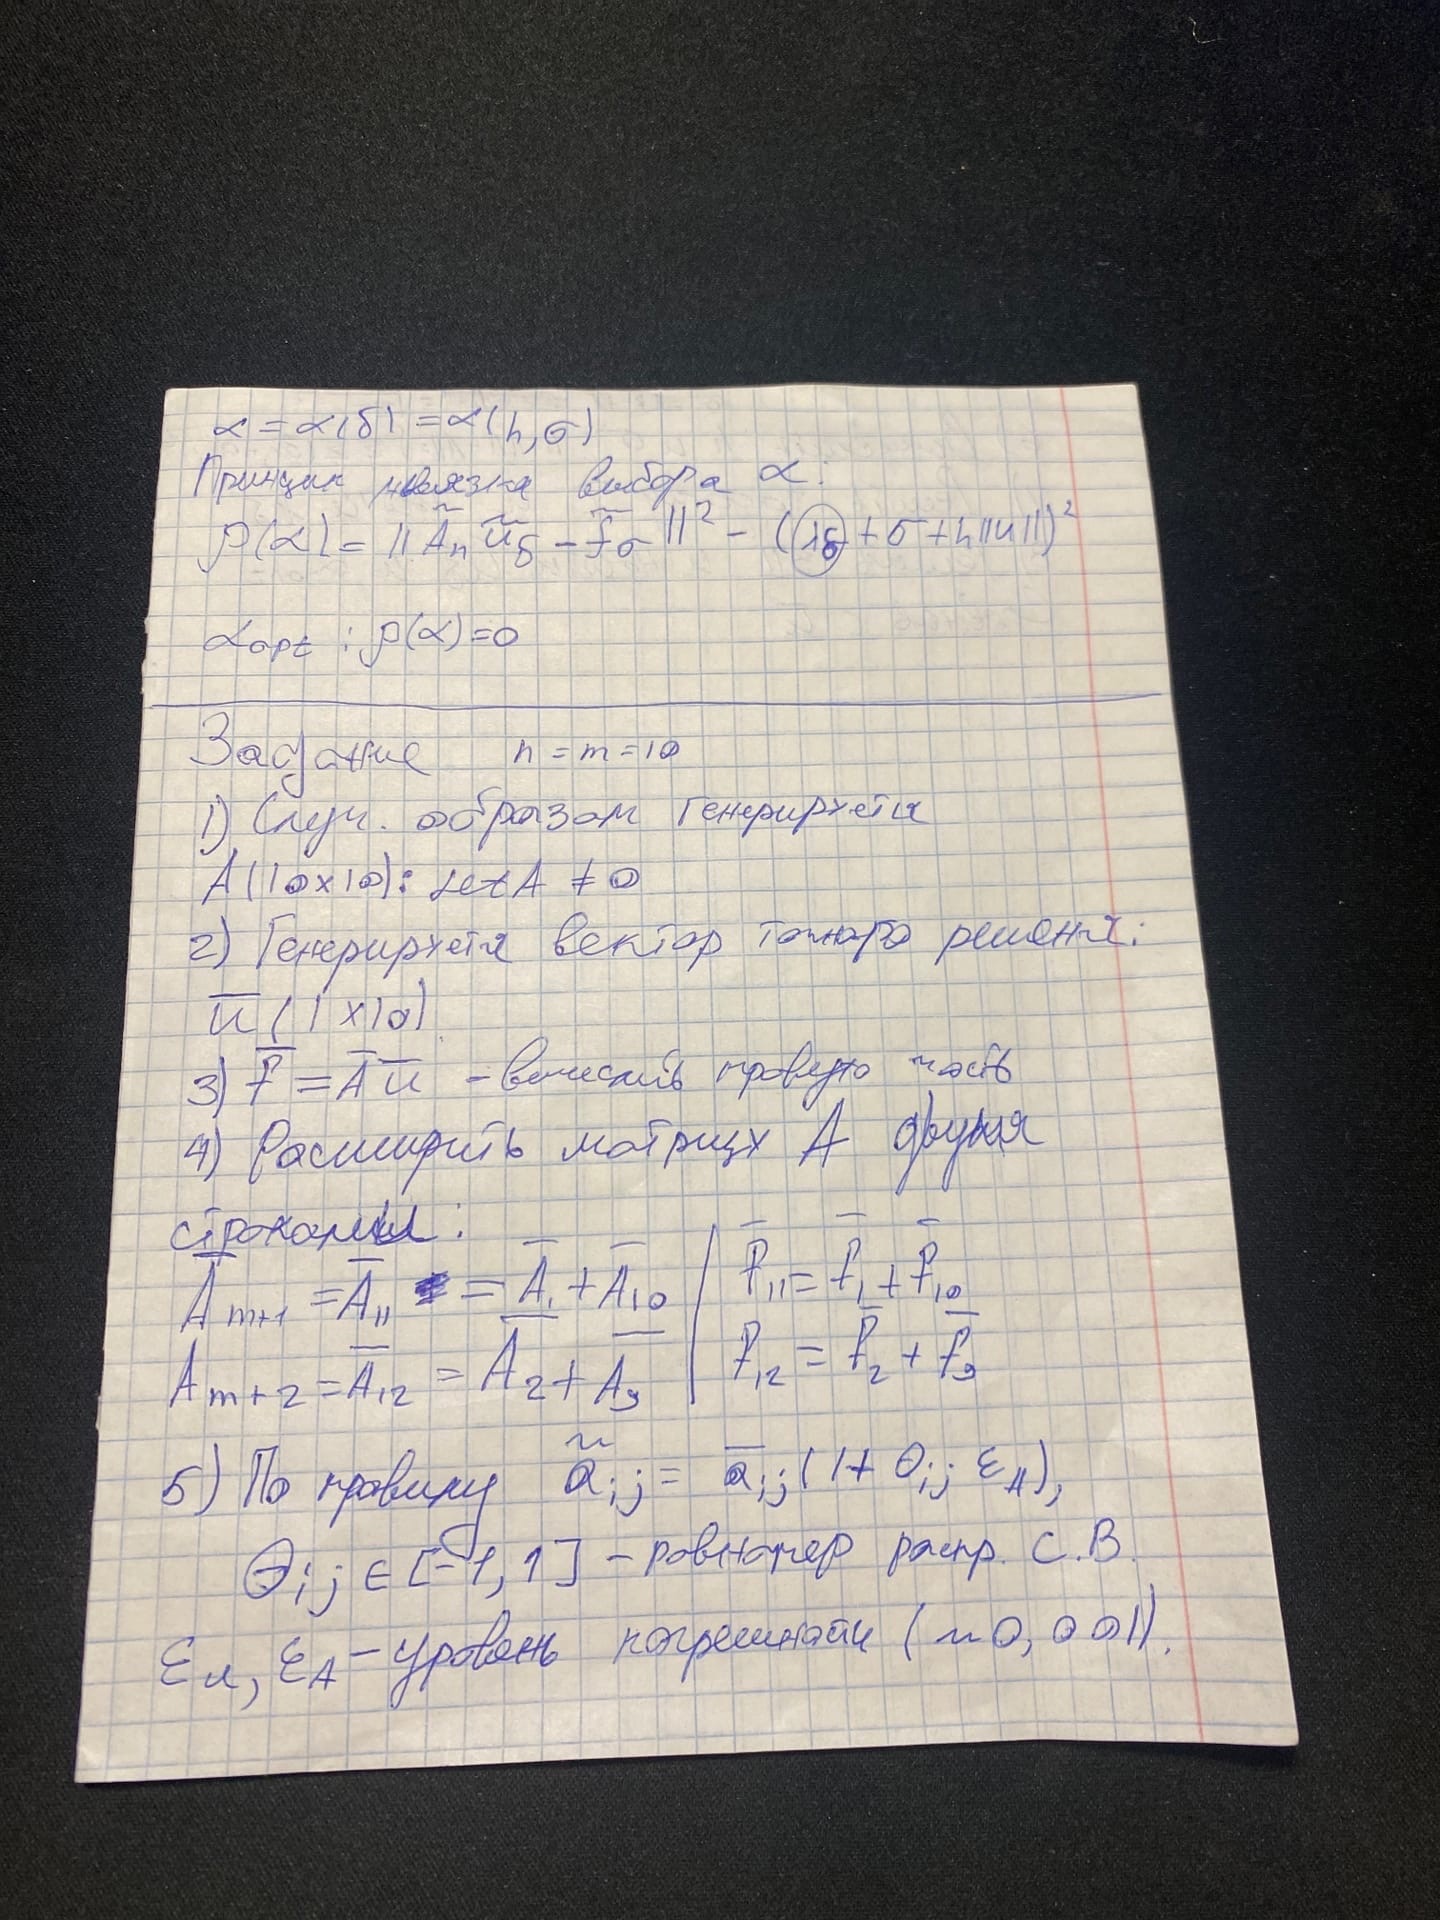 α = α(δ) = α(h, σ)
Принцип невязка выбора α:
ρ(α) = ||Ã_h ũ_δ - f̃_σ||² - (λδ + σ + h||u||)²
α_opt : ρ(α) = 0
Задание n = m = 10
1) Случ. образом генерируется
A(10x10): det A ≠ 0
2) Генерируется вектор точного решения:
u̅ (1x10)
3) f̅ = A̅ u̅ - вычислить правую часть
4) Расширить матрицу A двумя
строками:
A̅_{m+1} = A̅_{11} = A̅_1 + A̅_{10} | f̅_{11} = f̅_1 + f̅_{10}
A_{m+2} = A̅_{12} = A̅_2 + A̅_9 | f_{12} = f̅_2 + f̅_9
5) По правилу ã_{ij} = a̅_{ij}(1 + θ_{ij} ε_A),
θ_{ij} ∈ [-1, 1] - равномер распр. С.В.
ε_u, ε_A - уровень погрешности (~0,001).